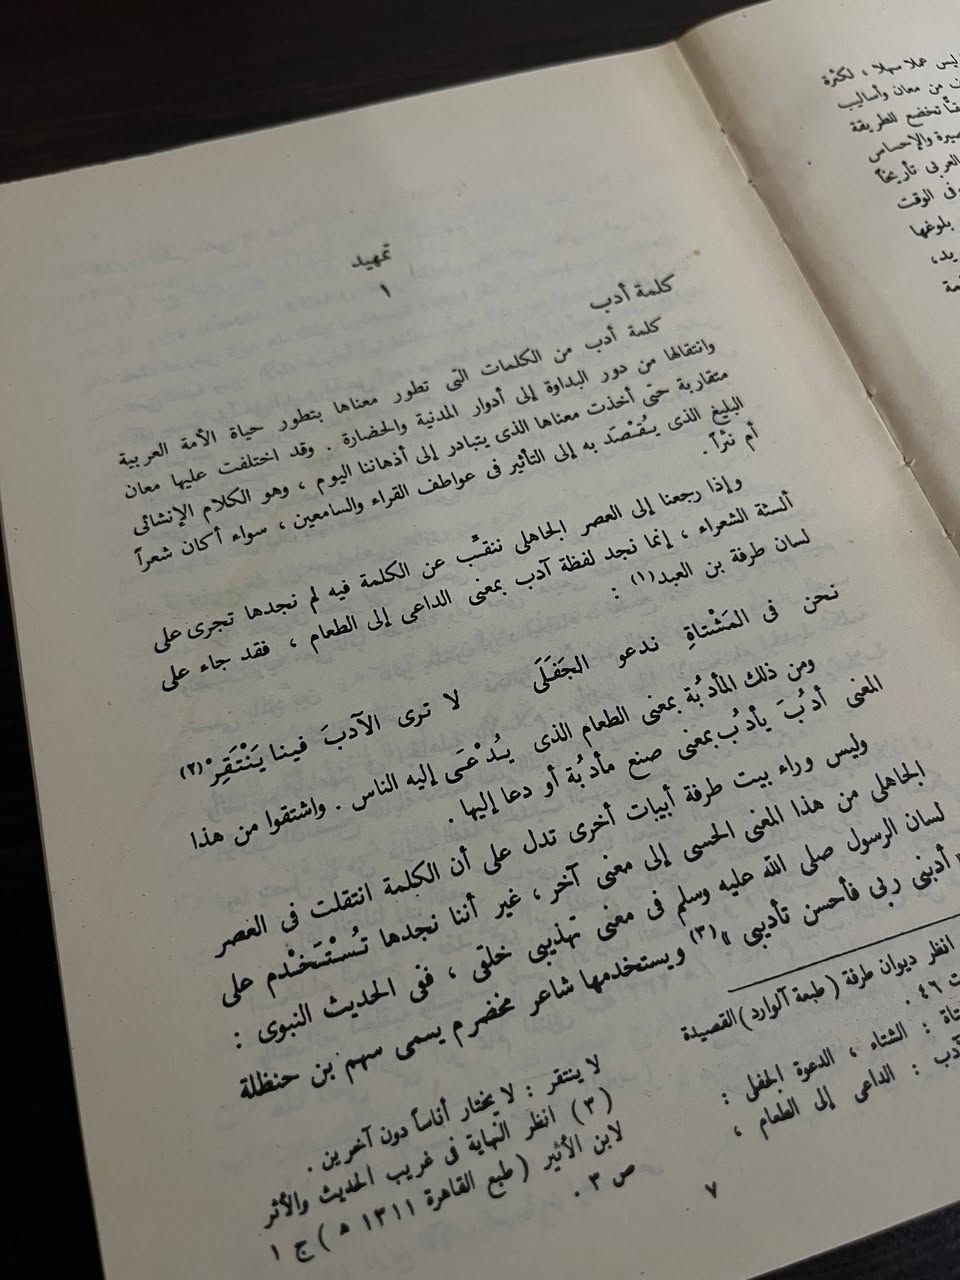 تمهيد
١
كلمة أدب
كلمة أدب من الكلمات التى تطور معناها بتطور حياة الأمة العربية
وانتقالها من دور البداوة إلى أدوار المدنية والحضارة . وقد اختلفت عليها معان
متقاربة حتى أخذت معناها الذى يتبادر إلى أذهاننا اليوم ، وهو الكلام الإنشائى
البليغ الذى يُقْصَد به إلى التأثير فى عواطف القراء والسامعين ، سواء أكان شعراً
أم نثراً .
وإذا رجعنا إلى العصر الجاهلى ننقِّب عن الكلمة فيه لم نجدها تجرى على
ألسنة الشعراء ، إنما نجد لفظة آدب بمعنى الداعى إلى الطعام ، فقد جاء على
لسان طرفة بن العبد(١) :
نحن فى المَشْتاةِ ندعو الجَفَلَى لا ترى الآدبَ فينا يَنْتَقِرْ(٢)
ومن ذلك المأدُبة بمعنى الطعام الذى يُدْعَى إليه الناس . واشتقوا من هذا
المعنى أدُبَ يأدُب بمعنى صنع مأدُبة أو دعا إليها .
وليس وراء بيت طرفة أبيات أخرى تدل على أن الكلمة انتقلت فى العصر
الجاهلى من هذا المعنى الحسى إلى معنى آخر ، غير أننا نجدها تُسْتَخْدم على
لسان الرسول صلى الله عليه وسلم فى معنى تهذيبى خلقى ، ففى الحديث النبوى :
« أدبنى ربى فأحسن تأديبى »(٣) ويستخدمها شاعر مخضرم يسمى سهم بن حنظلة
انظر ديوان طرفة ( طبعة آلوارد ) القصيدة
٤٦ .
: الشتاء ، الدعوة الجفلى :
: الداعى إلى الطعام ،
لا ينتقر : لا يختار أناساً دون آخرين .
(٣) انظر النهاية فى غريب الحديث والأثر
لابن الأثير ( طبع القاهرة ١٣١١ ه ) ج ١
ص ٣ .
٧
ليس عملا سهلا ، لكثرة
من معان وأساليب
تخضع للطريقة
والإحساس
العربى تأريخاً
فى الوقت
بلوغها